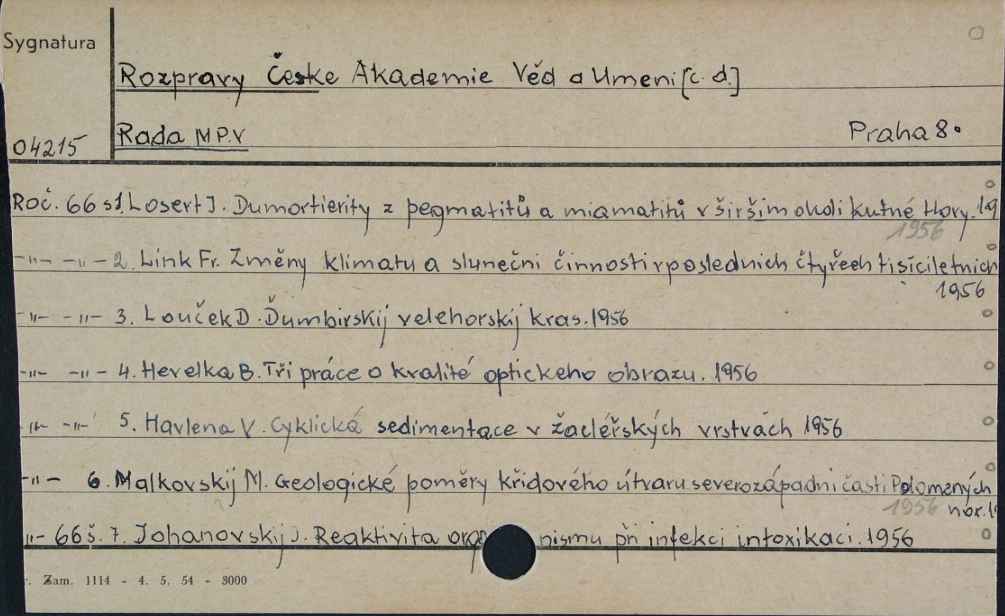 Sygnatura
Rozpravy Česke Akademie Věd a Umeni [c. d.]
04215 Rada MP.V Praha 8.
Roč. 66 s1. Losert J. Dumortierity z pegmatitů a miamatitů v širším okoli kutné Hory. 19
1956
-"- -"- 2. Link Fr. Změny klimatu a slunečni činnosti v posledních čtyřech tisíciletnich
1956
-"- -"- 3. Louček D. Ďumbirskij velehorskij kras. 1956
-"- -"- 4. Hevelka B. Tři práce o kvalité optickeho obrazu. 1956
-"- -"- 5. Havlena V. Cyklická sedimentace v žacléřských vrstvách 1956
-"- 6. Malkovskij M. Geologické poměry křídového útvaru severozápadni časti Polomených
1956 hor. 1
-"- 66 š. 7. Johanovskij J. Reaktivita org nismu při infekci intoxikaci. 1956
. Zam. 1114 - 4. 5. 54 - 3000